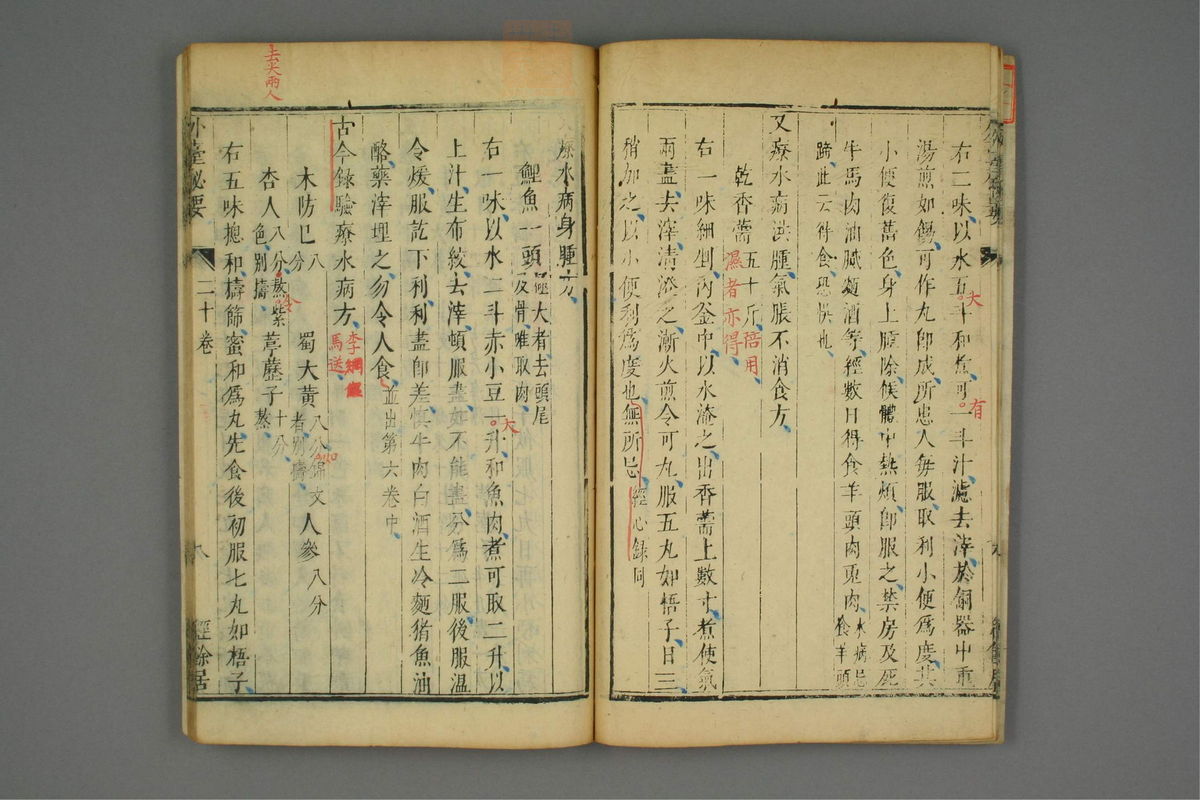 右二味以水五斗和煮可一斗汁濾去滓於銅器中重
湯煎如餳可作丸即成所患人每服取利小便為度其
小便復舊色身上腫除候體中熱煩即服之禁房及死
牛馬肉油膩麵酒等經數日得食羊頭肉兎肉水病忌食羊頭
蹄此云得食恐悞也
又療水病洪腫氣脹不消食方
乾香薷五十斤
濕者亦得倍用
右一味細剉內釜中以水淹之出香薷上數寸煮使氣
兩盡去滓清澄之漸火煎令可丸服五丸如梧子日三
稍加之以小便利為度也無所忌經心錄同
大
有
療水病身腫方
鯉魚一頭極大者去頭尾及骨唯取肉
右一味以水二斗赤小豆一升和魚肉煮可取二升以
大
上汁生布絞去滓頓服盡如不能盡分為二服後服溫
令煖服訖下利利盡即差慎牛肉白酒生冷麵猪魚油
酪藥滓埋之勿令人食並出第六卷中
古今錄驗療水病方
李
馬送
木防已八分 蜀大黃八分錦文者別擣 人參八分
杏人八分熬紫色別擣 葶藶子十分蒸
右五味揔和擣篩蜜和為丸先食後初服七丸如梧子
去尖兩人
外臺秘要
二十卷
八
經餘居